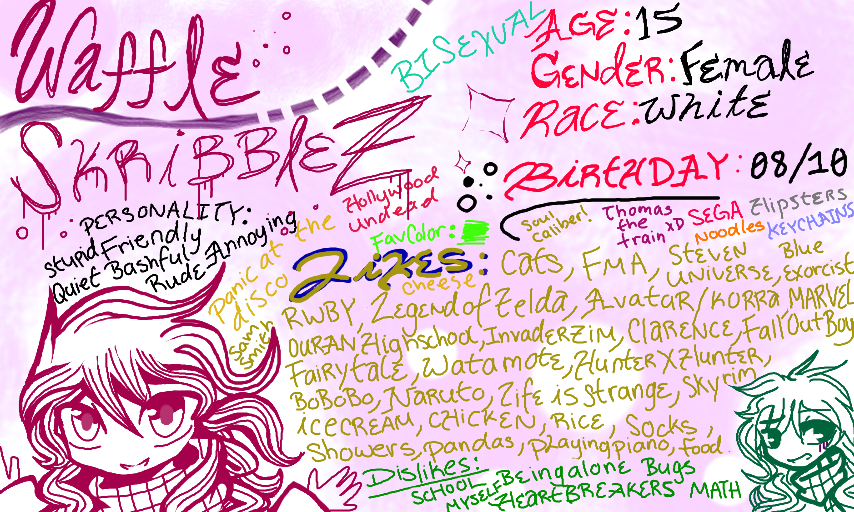 Waffle
SKRiBBlEZ
BISEXUAL
AGE: 15
GENDER: FEmalE
RacE: WhitE
BiRtHDAY: 08/10
PERSONALITY:
stupid Friendly
Quiet Bashful
Rude Annoying
Hollywood
undead
Panic at the
disco
Sam
Smith
FavColor:
Soul
caliber!
Thomas
the
train xD
SEGA
Noodles
Flipsters
KEYCHAINS
LikES:
cheese
cats, FMA, STEVEN
UNIVERSE, Blue
Exorcist
RWBY, LEgEnd of ZElda, AvataR/KORRA MARVEL
OURAN Highschool, InvadERZim, CLARENCE, Fall Out Boy
FaiRytalE, Watamote, HuntER X HuntER,
BoBoBo, NaRuto, LifE iS StRangE, SkyRim
icECREAM, CHiCKEN, RicE, Socks,
Showers, pandas, playing piano, food.
Dislikes:
SCHOOL
MYSELF
Being alone Bugs
HEaRtBREAKERS MATH